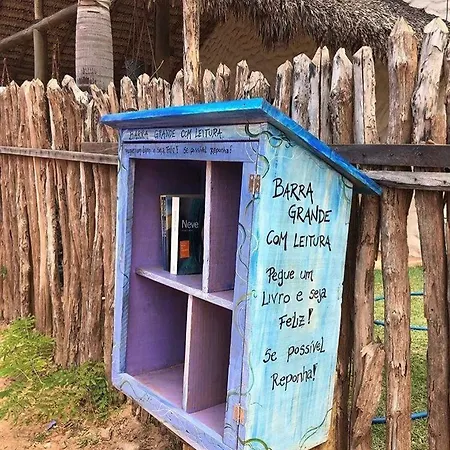 BARRA GRANDE COM LEITURA
se possível
Neve
BARRA
GRANDE
COM LEITURA
Pegue um
LIVRO e seja
FELIZ!
Se possível
REPONHA!